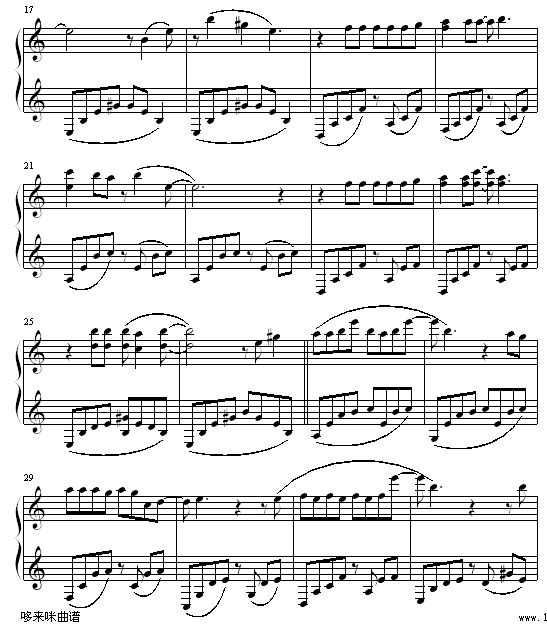 17
21
25
29
哆来咪曲谱
www.1